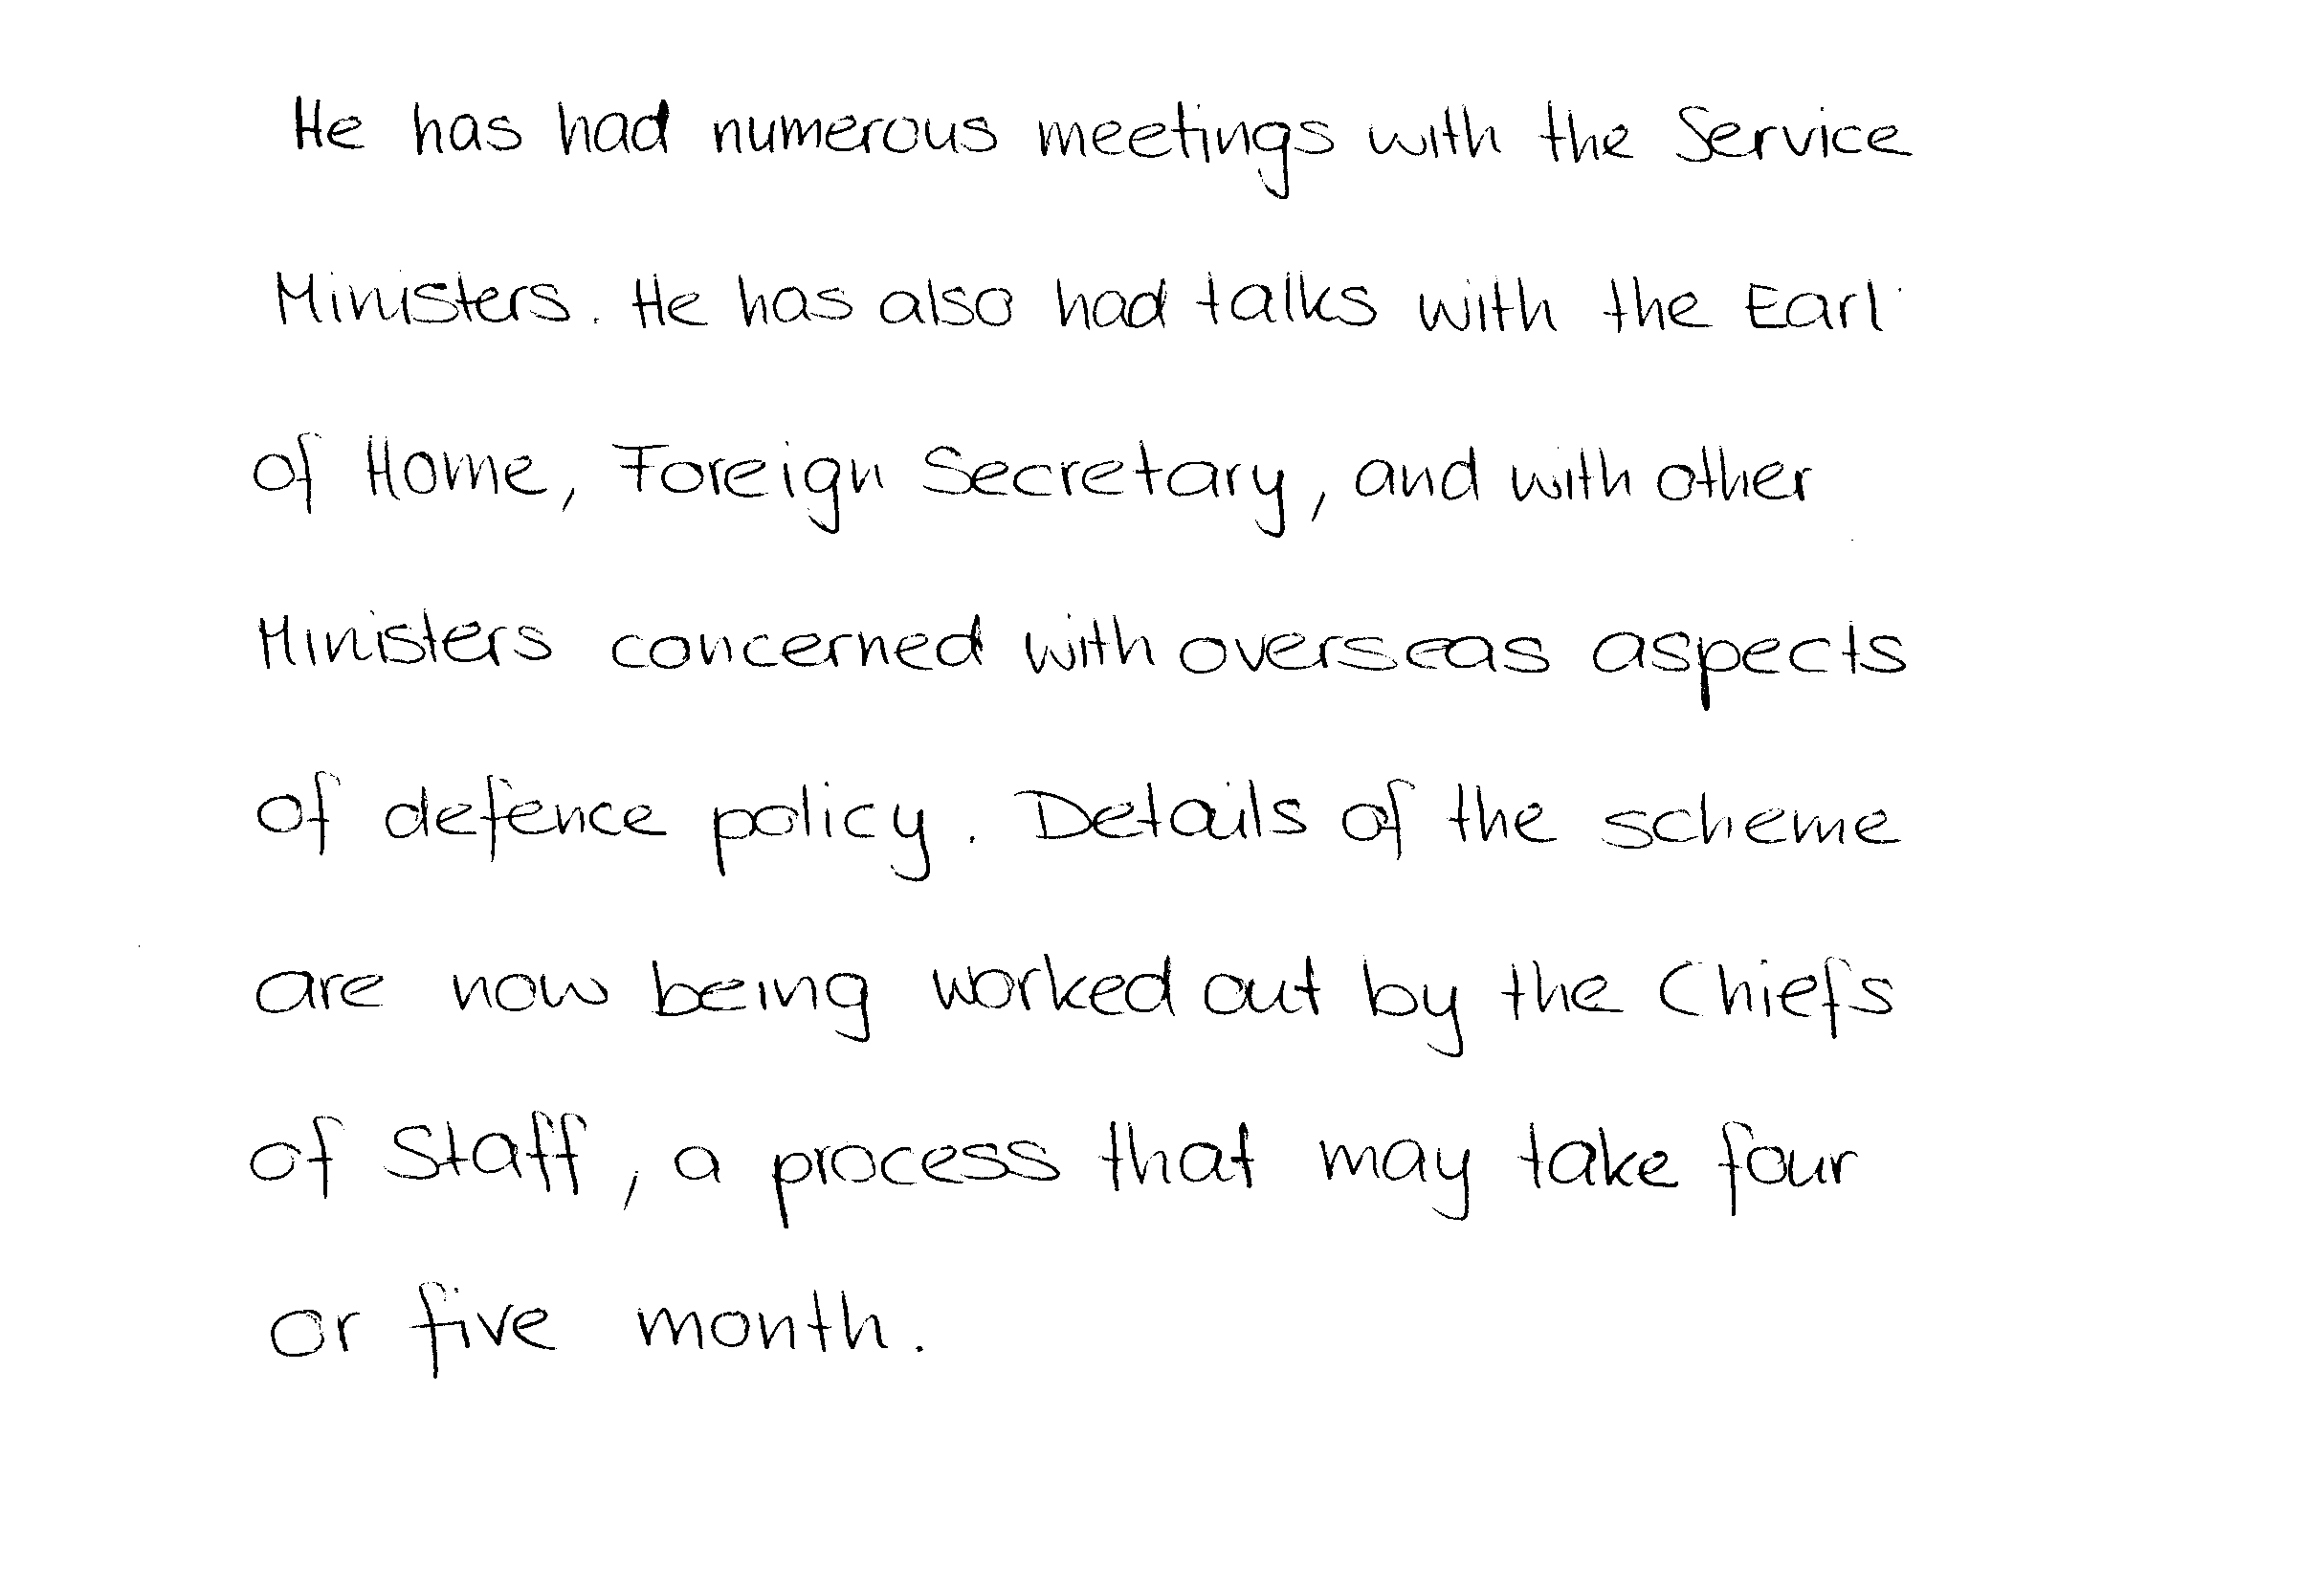 He has had numerous meetings with the Service
Ministers. He has also had talks with the Earl
of Home, Foreign Secretary, and with other
Ministers concerned with overseas aspects
of defence policy. Details of the scheme
are now being worked out by the Chiefs
of Staff, a process that may take four
or five month.